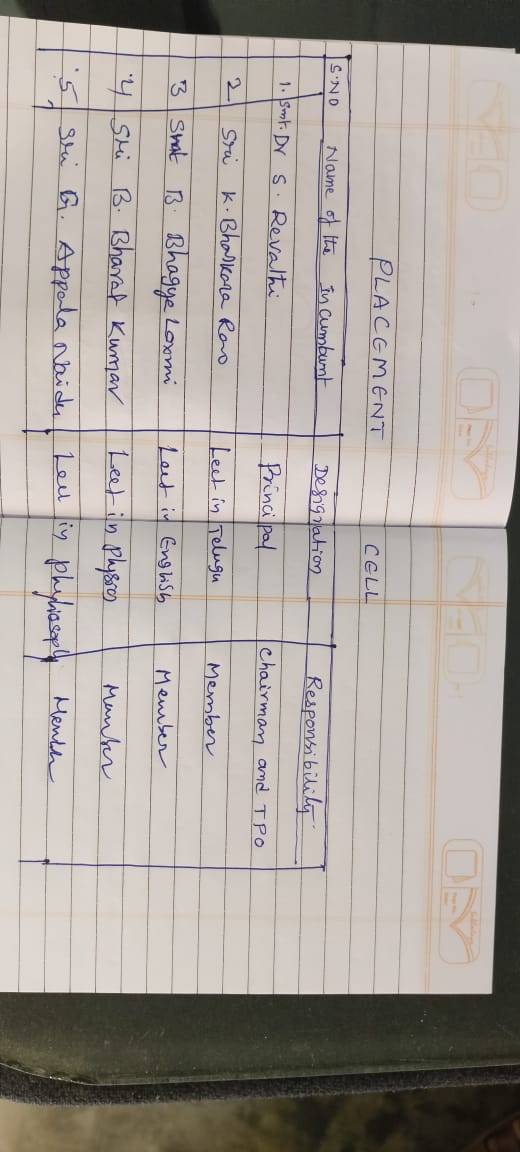 PLACEMENT CELL
S.NO Name of the incumbent Designation Responsibility
1. Smt. Dr S. Revathi Principal Chairman and TPO
2 Sri K. Bhaskara Rao Lect in Telugu Member
3 Smt B. Bhagya Laxmi Lect in English Member
4 Sri B. Bharat Kumar Lect in Physics Member
5, Sri G. Appala Naidu Lect in Member